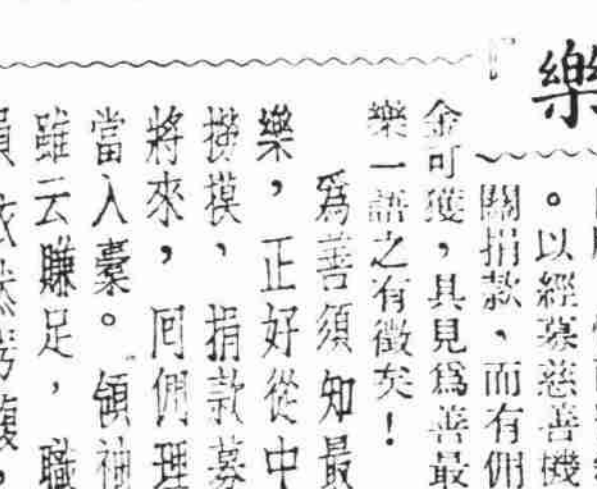 樂
。以經募慈善機
關捐款、而有佣
金可獲，具見爲善最
樂一語之有徵矣！
爲善須知最
樂，正好從中
撈摸、捐款募
將來，回佣理
當入橐。領袖
雖云賺足，職
員依然枵腹，